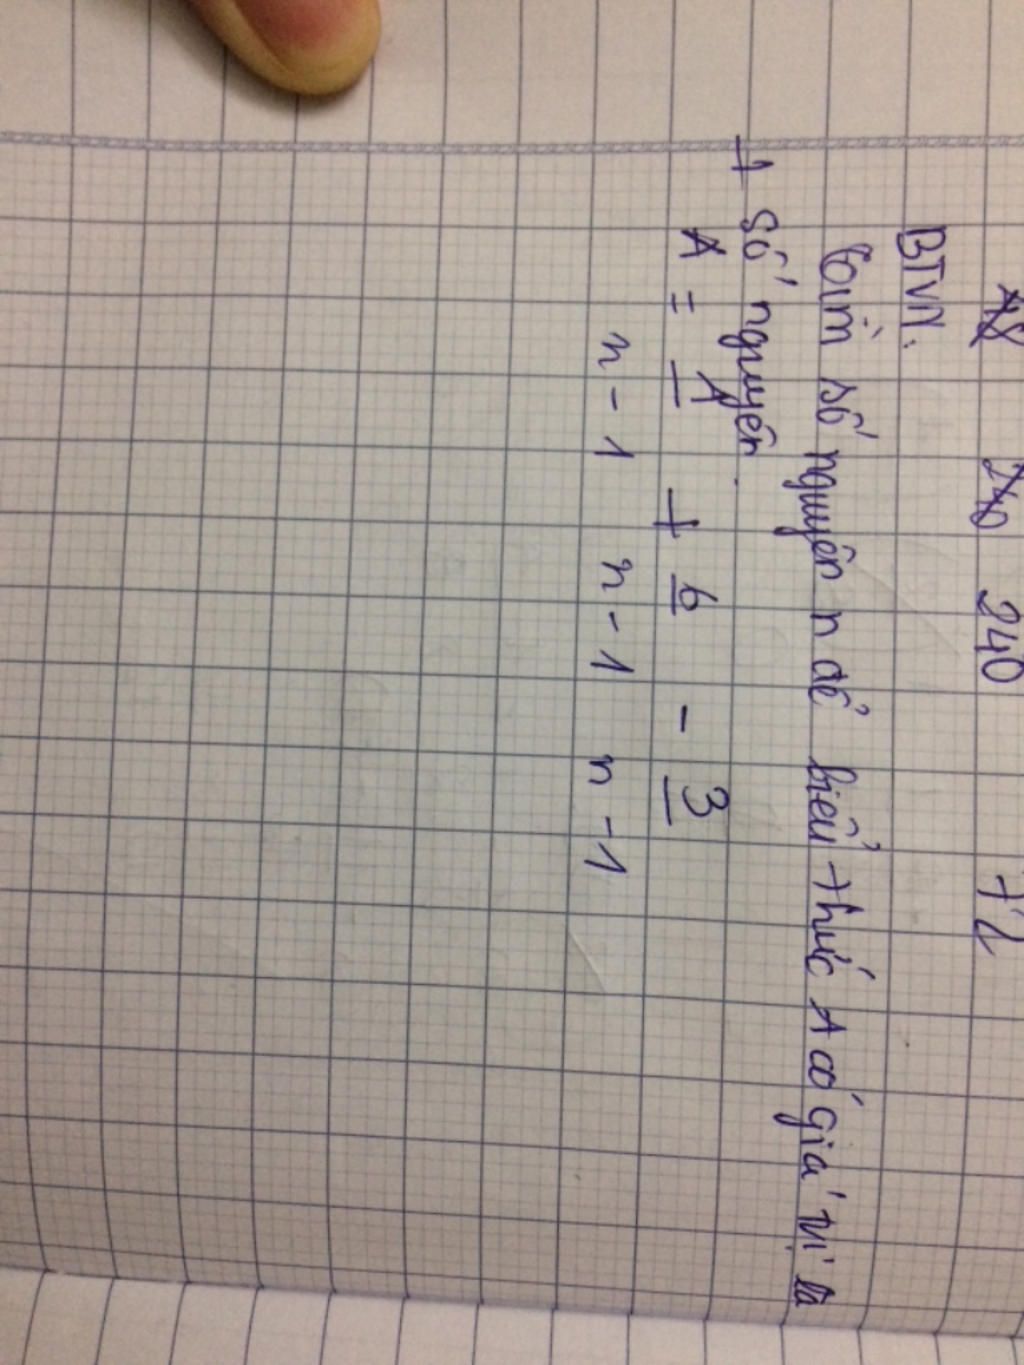 48 240 240 72
BTVN.
Tìm số nguyên n để biểu thức A có giá trị là
1 số nguyên.
A = 1/n - 1 + 6/n - 1 - 3/n - 1